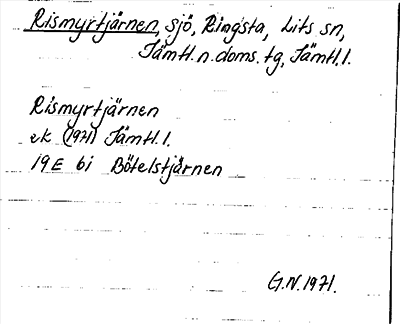 Rismyrtjärnen, sjö, Ringsta, Lits sn,
Jämtl. n. doms. tg, Jämtl. l.
Rismyrtjärnen
ek (1971) Jämtl. l.
19E 6i Bötelstjärnen
G.N. 1971.